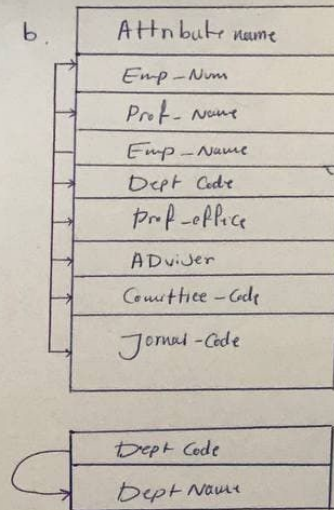 b.
Attribute name
Emp-Num
Prof-Name
Emp-Name
Dept Code
Prof-office
ADviser
Comittice-Code
Jornal-Code
Dept Code
Dept Name